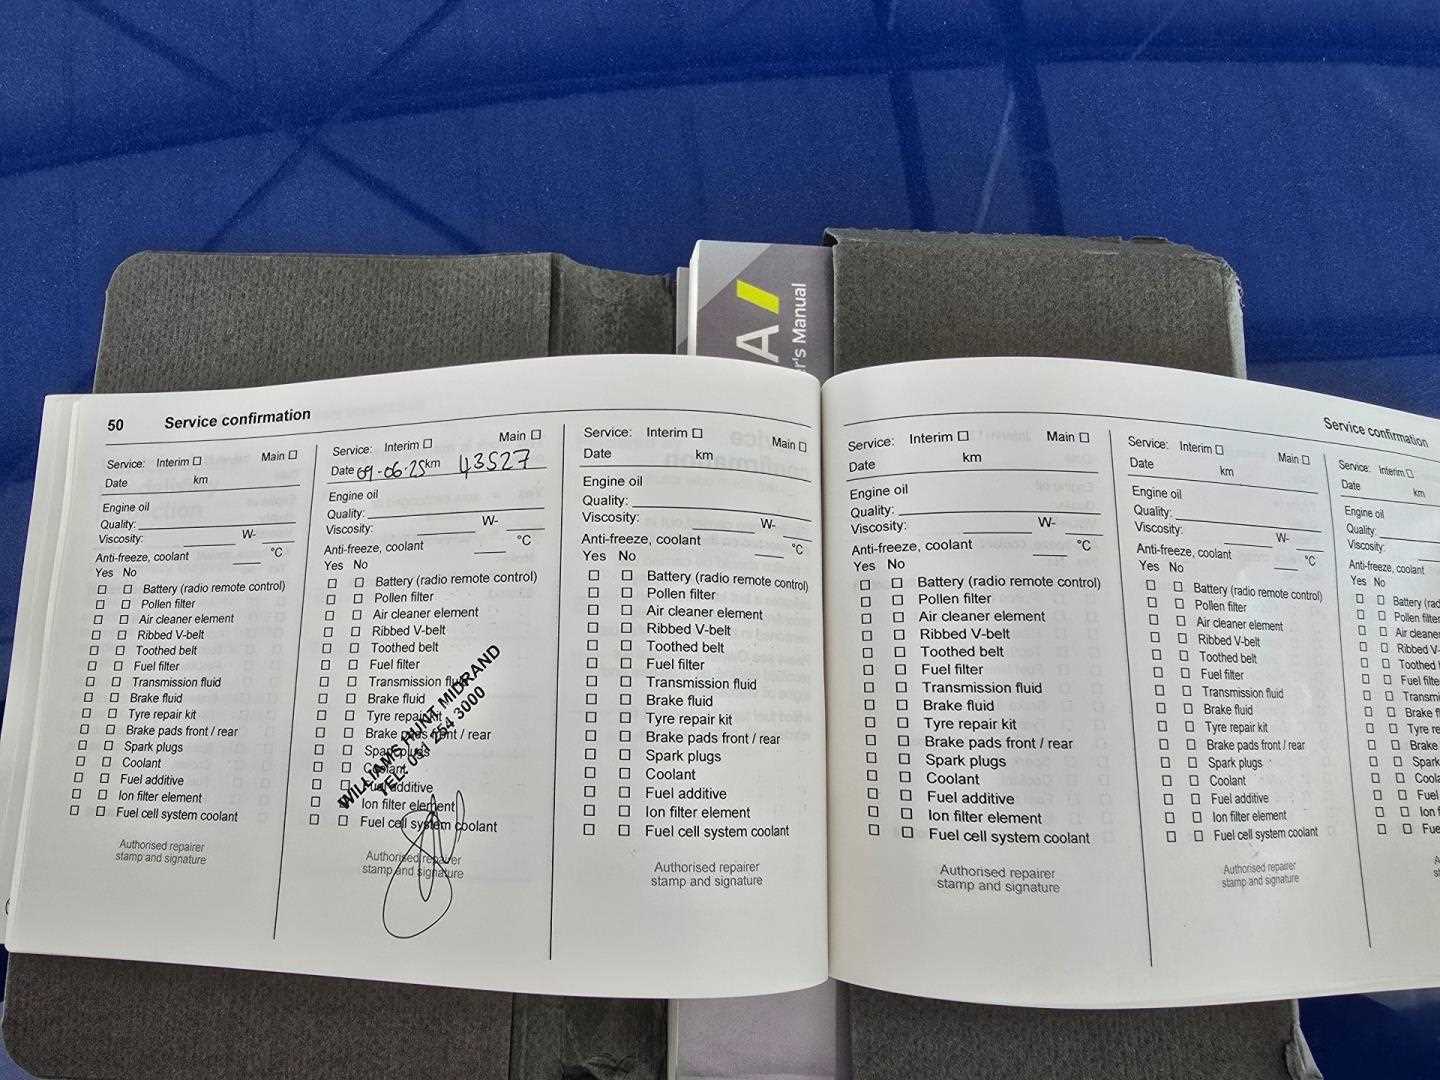 A
r's Manual
50 Service confirmation
Service: Interim ☐ Main ☐
Date km
Engine oil
Quality:
Viscosity: W-
Anti-freeze, coolant °C
Yes No
☐ ☐ Battery (radio remote control)
☐ ☐ Pollen filter
☐ ☐ Air cleaner element
☐ ☐ Ribbed V-belt
☐ ☐ Toothed belt
☐ ☐ Fuel filter
☐ ☐ Transmission fluid
☐ ☐ Brake fluid
☐ ☐ Tyre repair kit
☐ ☐ Brake pads front / rear
☐ ☐ Spark plugs
☐ ☐ Coolant
☐ ☐ Fuel additive
☐ ☐ Ion filter element
☐ ☐ Fuel cell system coolant
Authorised repairer
stamp and signature
Service: Interim ☐ Main ☐
Date 09-06-25 km 43527
Engine oil
Quality:
Viscosity: W-
Anti-freeze, coolant °C
Yes No
☐ ☐ Battery (radio remote control)
☐ ☐ Pollen filter
☐ ☐ Air cleaner element
☐ ☐ Ribbed V-belt
☐ ☐ Toothed belt
☐ ☐ Fuel filter
☐ ☐ Transmission fluid
☐ ☐ Brake fluid
☐ ☐ Tyre repair kit
☐ ☐ Brake pads front / rear
☐ ☐ Spark plugs
☐ ☐ Coolant
☐ ☐ Fuel additive
☐ ☐ Ion filter element
☐ ☐ Fuel cell system coolant
WILLIAMS HUNT MIDRAND
TEL: 051 254 3000
Authorised repairer
stamp and signature
Service: Interim ☐ Main ☐
Date km
Engine oil
Quality:
Viscosity: W-
Anti-freeze, coolant °C
Yes No
☐ ☐ Battery (radio remote control)
☐ ☐ Pollen filter
☐ ☐ Air cleaner element
☐ ☐ Ribbed V-belt
☐ ☐ Toothed belt
☐ ☐ Fuel filter
☐ ☐ Transmission fluid
☐ ☐ Brake fluid
☐ ☐ Tyre repair kit
☐ ☐ Brake pads front / rear
☐ ☐ Spark plugs
☐ ☐ Coolant
☐ ☐ Fuel additive
☐ ☐ Ion filter element
☐ ☐ Fuel cell system coolant
Authorised repairer
stamp and signature
Service confirmation
Service: Interim ☐ Main ☐
Date km
Engine oil
Quality:
Viscosity: W-
Anti-freeze, coolant °C
Yes No
☐ ☐ Battery (radio remote control)
☐ ☐ Pollen filter
☐ ☐ Air cleaner element
☐ ☐ Ribbed V-belt
☐ ☐ Toothed belt
☐ ☐ Fuel filter
☐ ☐ Transmission fluid
☐ ☐ Brake fluid
☐ ☐ Tyre repair kit
☐ ☐ Brake pads front / rear
☐ ☐ Spark plugs
☐ ☐ Coolant
☐ ☐ Fuel additive
☐ ☐ Ion filter element
☐ ☐ Fuel cell system coolant
Authorised repairer
stamp and signature
Service: Interim ☐ Main ☐
Date km
Engine oil
Quality:
Viscosity: W-
Anti-freeze, coolant °C
Yes No
☐ ☐ Battery (radio remote control)
☐ ☐ Pollen filter
☐ ☐ Air cleaner element
☐ ☐ Ribbed V-belt
☐ ☐ Toothed belt
☐ ☐ Fuel filter
☐ ☐ Transmission fluid
☐ ☐ Brake fluid
☐ ☐ Tyre repair kit
☐ ☐ Brake pads front / rear
☐ ☐ Spark plugs
☐ ☐ Coolant
☐ ☐ Fuel additive
☐ ☐ Ion filter element
☐ ☐ Fuel cell system coolant
Authorised repairer
stamp and signature
Service: Interim ☐
Date km
Engine oil
Quality:
Viscosity:
Anti-freeze, coolant
Yes No
☐ ☐ Battery (rad
☐ ☐ Pollen filter
☐ ☐ Air cleane
☐ ☐ Ribbed V-
☐ ☐ Toothed
☐ ☐ Fuel filte
☐ ☐ Transmi
☐ ☐ Brake f
☐ ☐ Tyre re
☐ ☐ Brake
☐ ☐ Spark
☐ ☐ Coola
☐ ☐ Fuel
☐ ☐ Ion f
☐ ☐ Fue